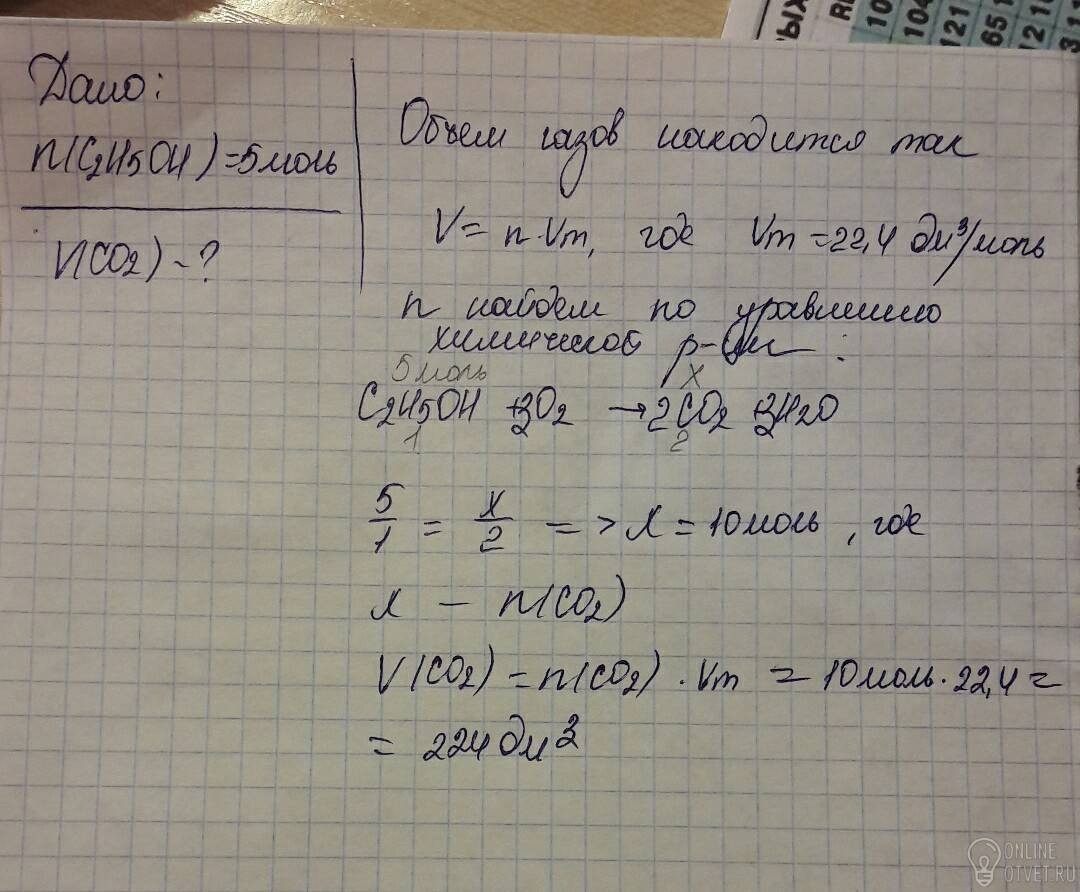 ЫХ
RU
10
104
121
65 1
12 1
3 11
Дано:
n(C2H5OH)=5моль
V(CO2) - ?
Объем газов находится так
V = n·Vm, где Vm = 22,4 дм³/моль
n найдем по уравнению
химической р-ции:
5 моль x
C2H5OH +3O2 → 2CO2 +3H2O
1 2
5/1 = x/2 => x = 10 моль, где
x - n(CO2)
V(CO2) = n(CO2)·Vm = 10 моль·22,4 =
= 224 дм³
ONLINE
OTVET.RU